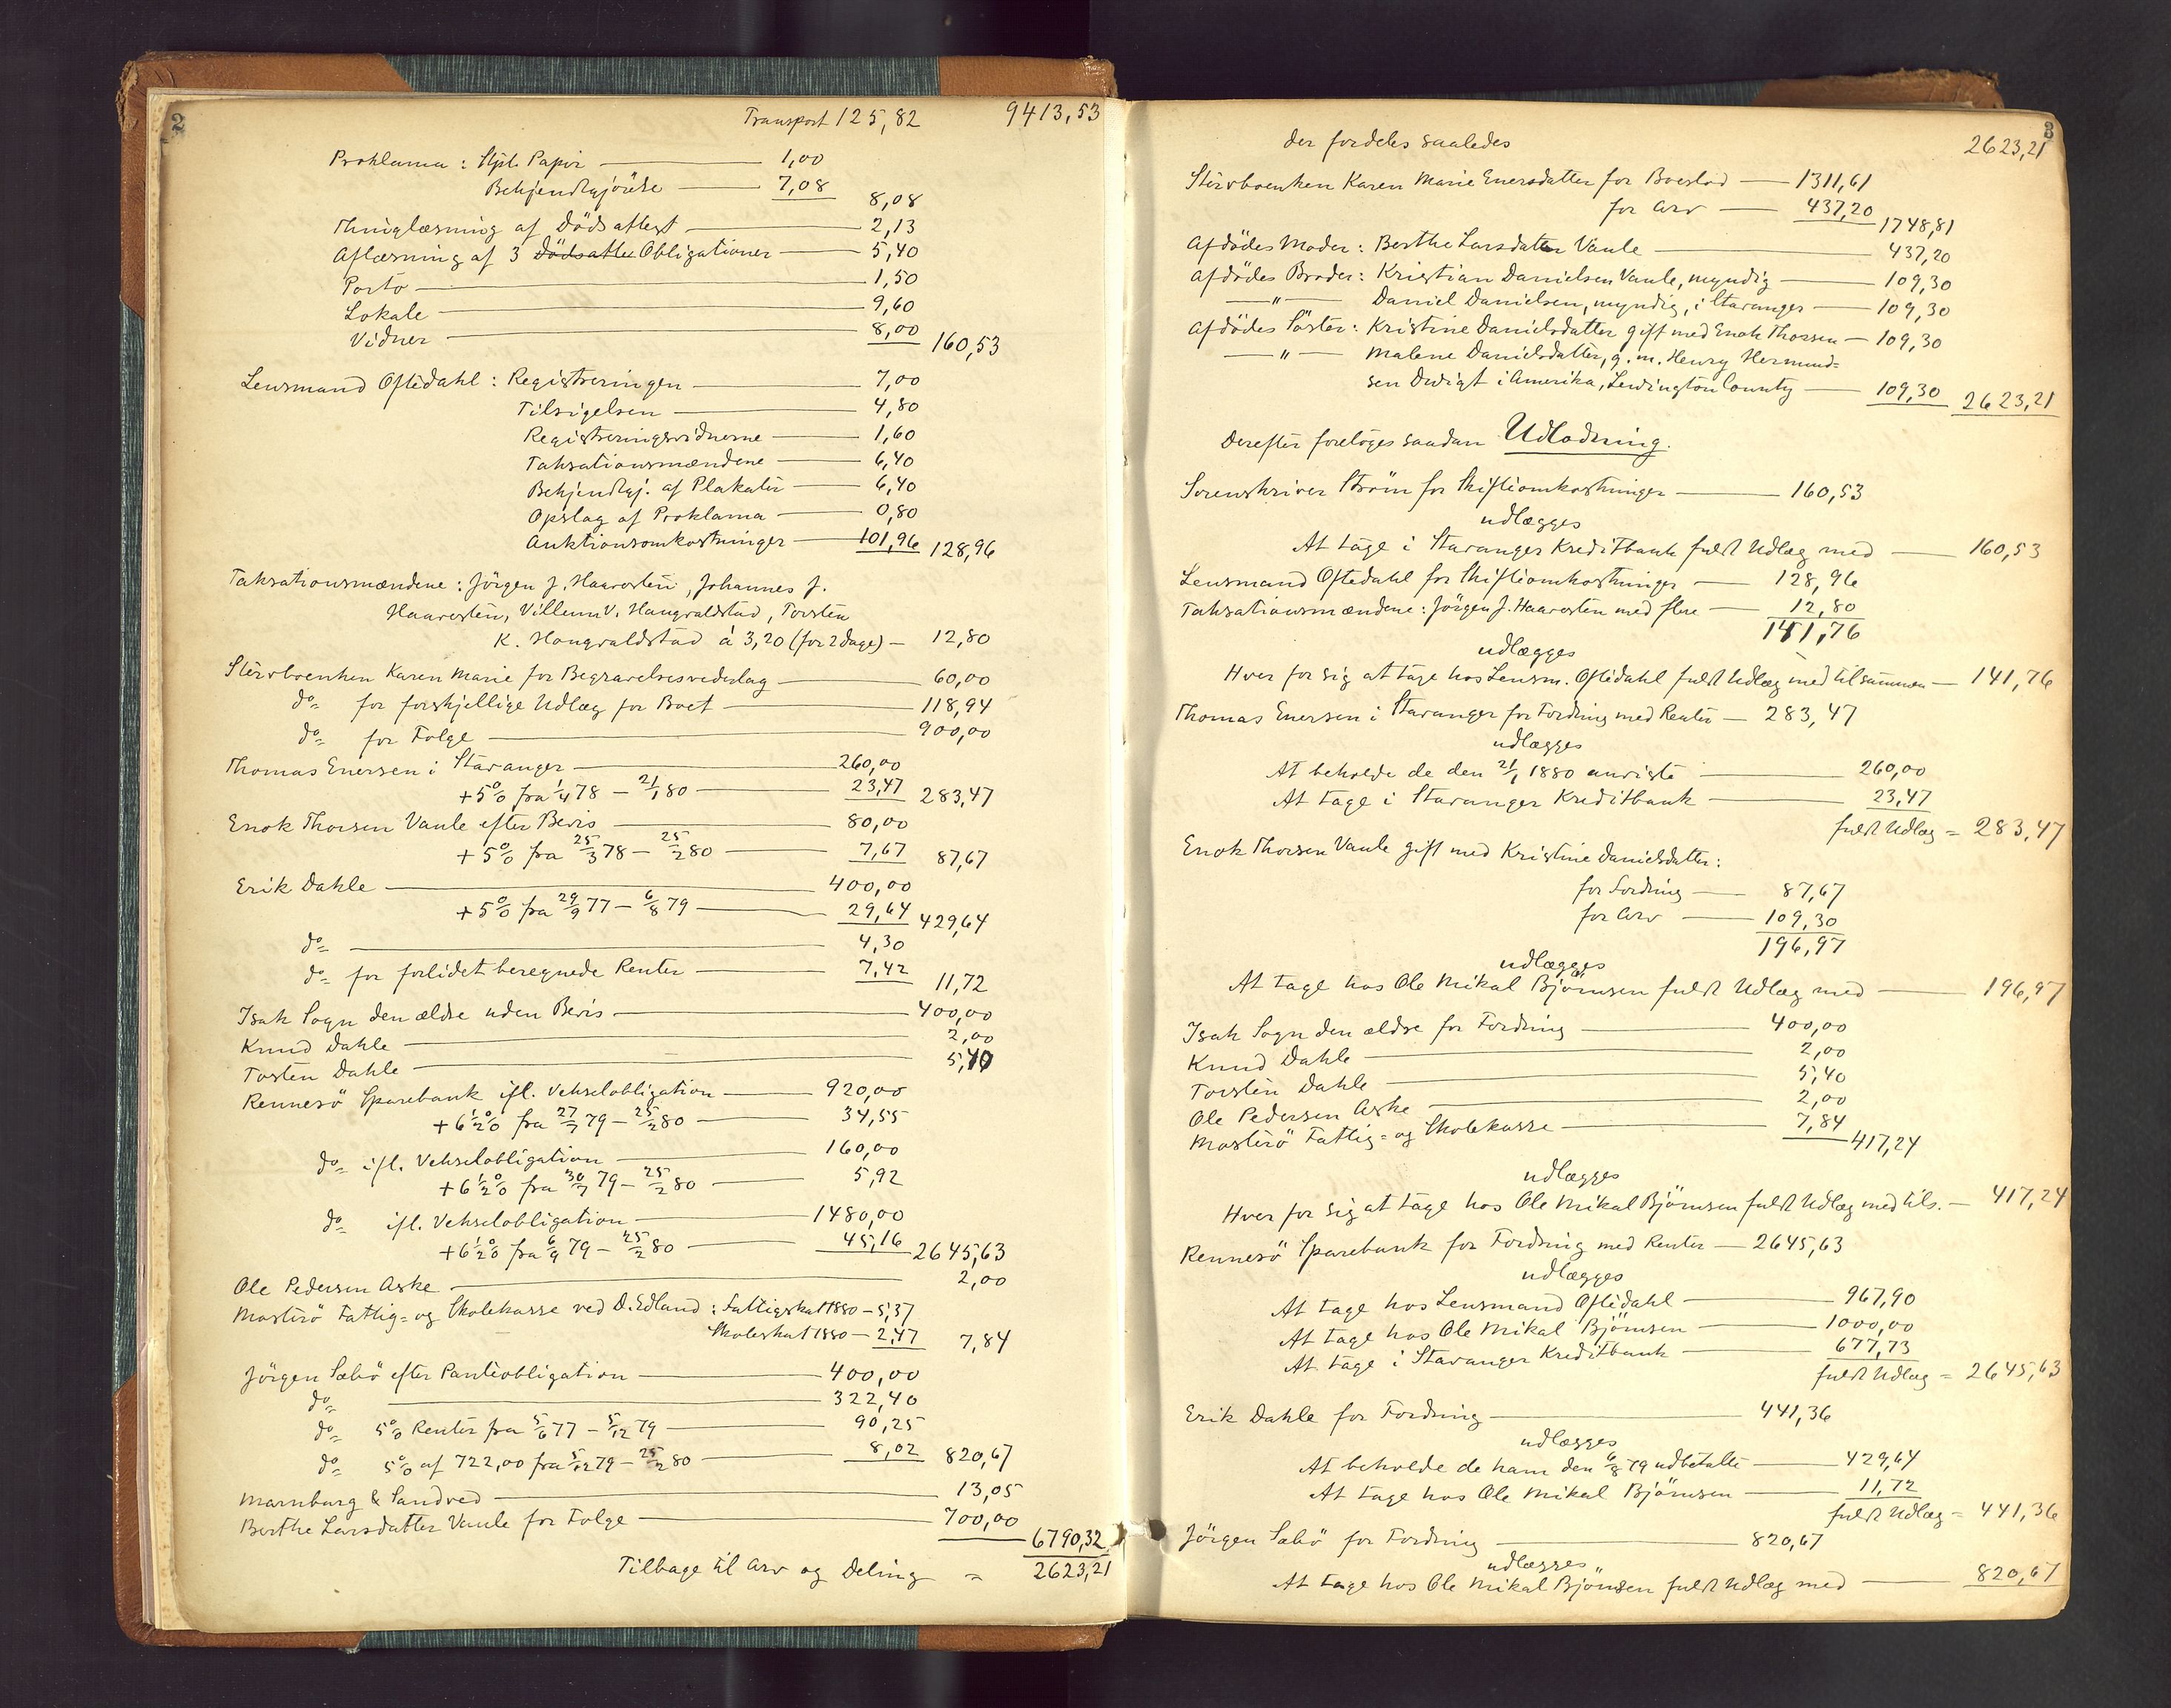 2
Transport 125,82 9413,53
Proklama: Stpl. Papir — 1,00
Bekjendtgjörelse — 7,08 8,08
Thinglæsning af Dödsattest — 2,13
Aflæsning af 3 Dödsatte Obligationer — 5,40
Porto — 1,50
Lokale — 9,60
Vidner — 8,00 160,53
Lensmand Oftedahl: Registreringen — 7,00
Tilsigelsen — 4,80
Registreringsvidnerne — 1,60
Taksationsmændene — 6,40
Bekjendtgj. af Plakater — 6,40
Opslag af Proklama — 0,80
Auktionsomkostninger — 101,96 128,96
Taksationsmændene: Jörgen J. Haaresten, Johannes J.
Haaresten, Villum V. Haugvaldstad, Torsten
K. Haugvaldstad á 3,20 (for 2 dage) — 12,80
Stervboenken Karen Marie for Begravelsesvederlag — 60,00
do= for forskjellige Udlæg for Boet — 118,94
do= for Folge — 900,00
Thomas Enersen i Stavanger — 260,00
+ 5% fra 1/4 78 – 21/1 80 — 23,47 283,47
Enok Thorsen Vaule efter Bevis — 80,00
+ 5% fra 25/3 78 – 25/2 80 — 7,67 87,67
Erik Dahle — 400,00
+ 5% fra 29/9 77 – 6/8 79 — 29,64 429,64
do= — 4,30
do= for forlidet beregnede Renter — 7,42 11,72
Isak Sogn den ældre uden Bevis — 400,00
Knud Dahle — 2,00
Torsten Dahle — 5,40
Rennesö Sparebank ifl. Vekselobligation — 920,00
+ 6 1/2 % fra 27/7 79 – 25/2 80 — 34,55
do= ifl. Vekselobligation — 160,00
+ 6 1/2 % fra 30/7 79 – 25/2 80 — 5,92
do= ifl. Vekselobligation — 1480,00
+ 6 1/2 % fra 6/9 79 – 25/2 80 — 45,16 2645,63
Ole Pedersen Aske — 2,00
Mosterö Fattig= og Skolekasse ved D. Edland: Fattigskat 1880 — 5,37
Skoleskat 1880 — 2,47 7,84
Jörgen Sæbö efter Panteobligation — 400,00
do= — 322,40
do= 5% Renter fra 5/6 77 – 5/12 79 — 90,25
do= 5% af 722,00 fra 5/12 79 – 25/2 80 — 8,02 820,67
Marnburg & Sandved — 13,05
Berthe Larsdatter Vaule for Folge — 700,00
6790,32
Tilbage til Arv og Deling = 2623,21
3
der fordeles saaledes 2623,21
Stervboenken Karen Marie Enersdatter for Boeslod — 1311,61
for Arv — 437,20 1748,81
Afdödes Moder: Berthe Larsdatter Vaule — 437,20
Afdödes Broder: Kristian Danielsen Vaule, myndig — 109,30
— " — Daniel Danielsen, myndig, i Stavanger — 109,30
Afdödes Söster: Kristine Danielsdatter gift med Enok Thorsen — 109,30
— " — Malene Danielsdatter, g. m. Henry Hermund=
sen Dwigt i Amerika, Lewington County — 109,30 2623,21
Derefter foretoges saadan Udlodning.
Sorenskriver Ström for Skifteomkostninger — 160,53
udlægges
At tage i Stavanger Kreditbank fuldt Udlæg med — 160,53
Lensmand Oftedahl for Skifteomkostninger — 128,96
Taksationsmændene: Jörgen J. Haaresten med flere — 12,80
141,76
udlægges
Hver for sig at tage hos Lensm. Oftedahl fuldt Udlæg med tilsammen — 141,76
Thomas Enersen i Stavanger for Fordring med Renter — 283,47
udlægges
At beholde de den 21/1 1880 anviste — 260,00
At tage i Stavanger Kreditbank — 23,47
fuldt Udlæg = 283,47
Enok Thorsen Vaule gift med Kristine Danielsdatter:
for Fordring — 87,67
for Arv — 109,30
196,97
udlægges
At tage hos Ole Mikal Bjömsen fuldt Udlæg med — 196,97
Isak Sogn den ældre for Fordring — 400,00
Knud Dahle — 2,00
Torsten Dahle — 5,40
Ole Pedersen Aske — 2,00
Mosterö Fattig= og Skolekasse — 7,84
417,24
udlægges
Hver for sig at tage hos Ole Mikal Bjömsen fuldt Udlæg med tils. — 417,24
Rennesö Sparebank for Fordring med Renter — 2645,63
udlægges
At tage hos Lensmand Oftedahl — 967,90
At tage hos Ole Mikal Bjömsen — 1000,00
At tage i Stavanger Kreditbank — 677,73
fuldt Udlæg = 2645,63
Erik Dahle for Fordring — 441,36
udlægges
At beholde de ham den 6/8 79 udbetalte — 429,64
At tage hos Ole Mikal Bjömsen — 11,72
fuldt Udlæg = 441,36
Jörgen Sæbö for Fordring — 820,67
udlægges
At tage hos Ole Mikal Bjömsen fuldt Udlæg med — 820,67